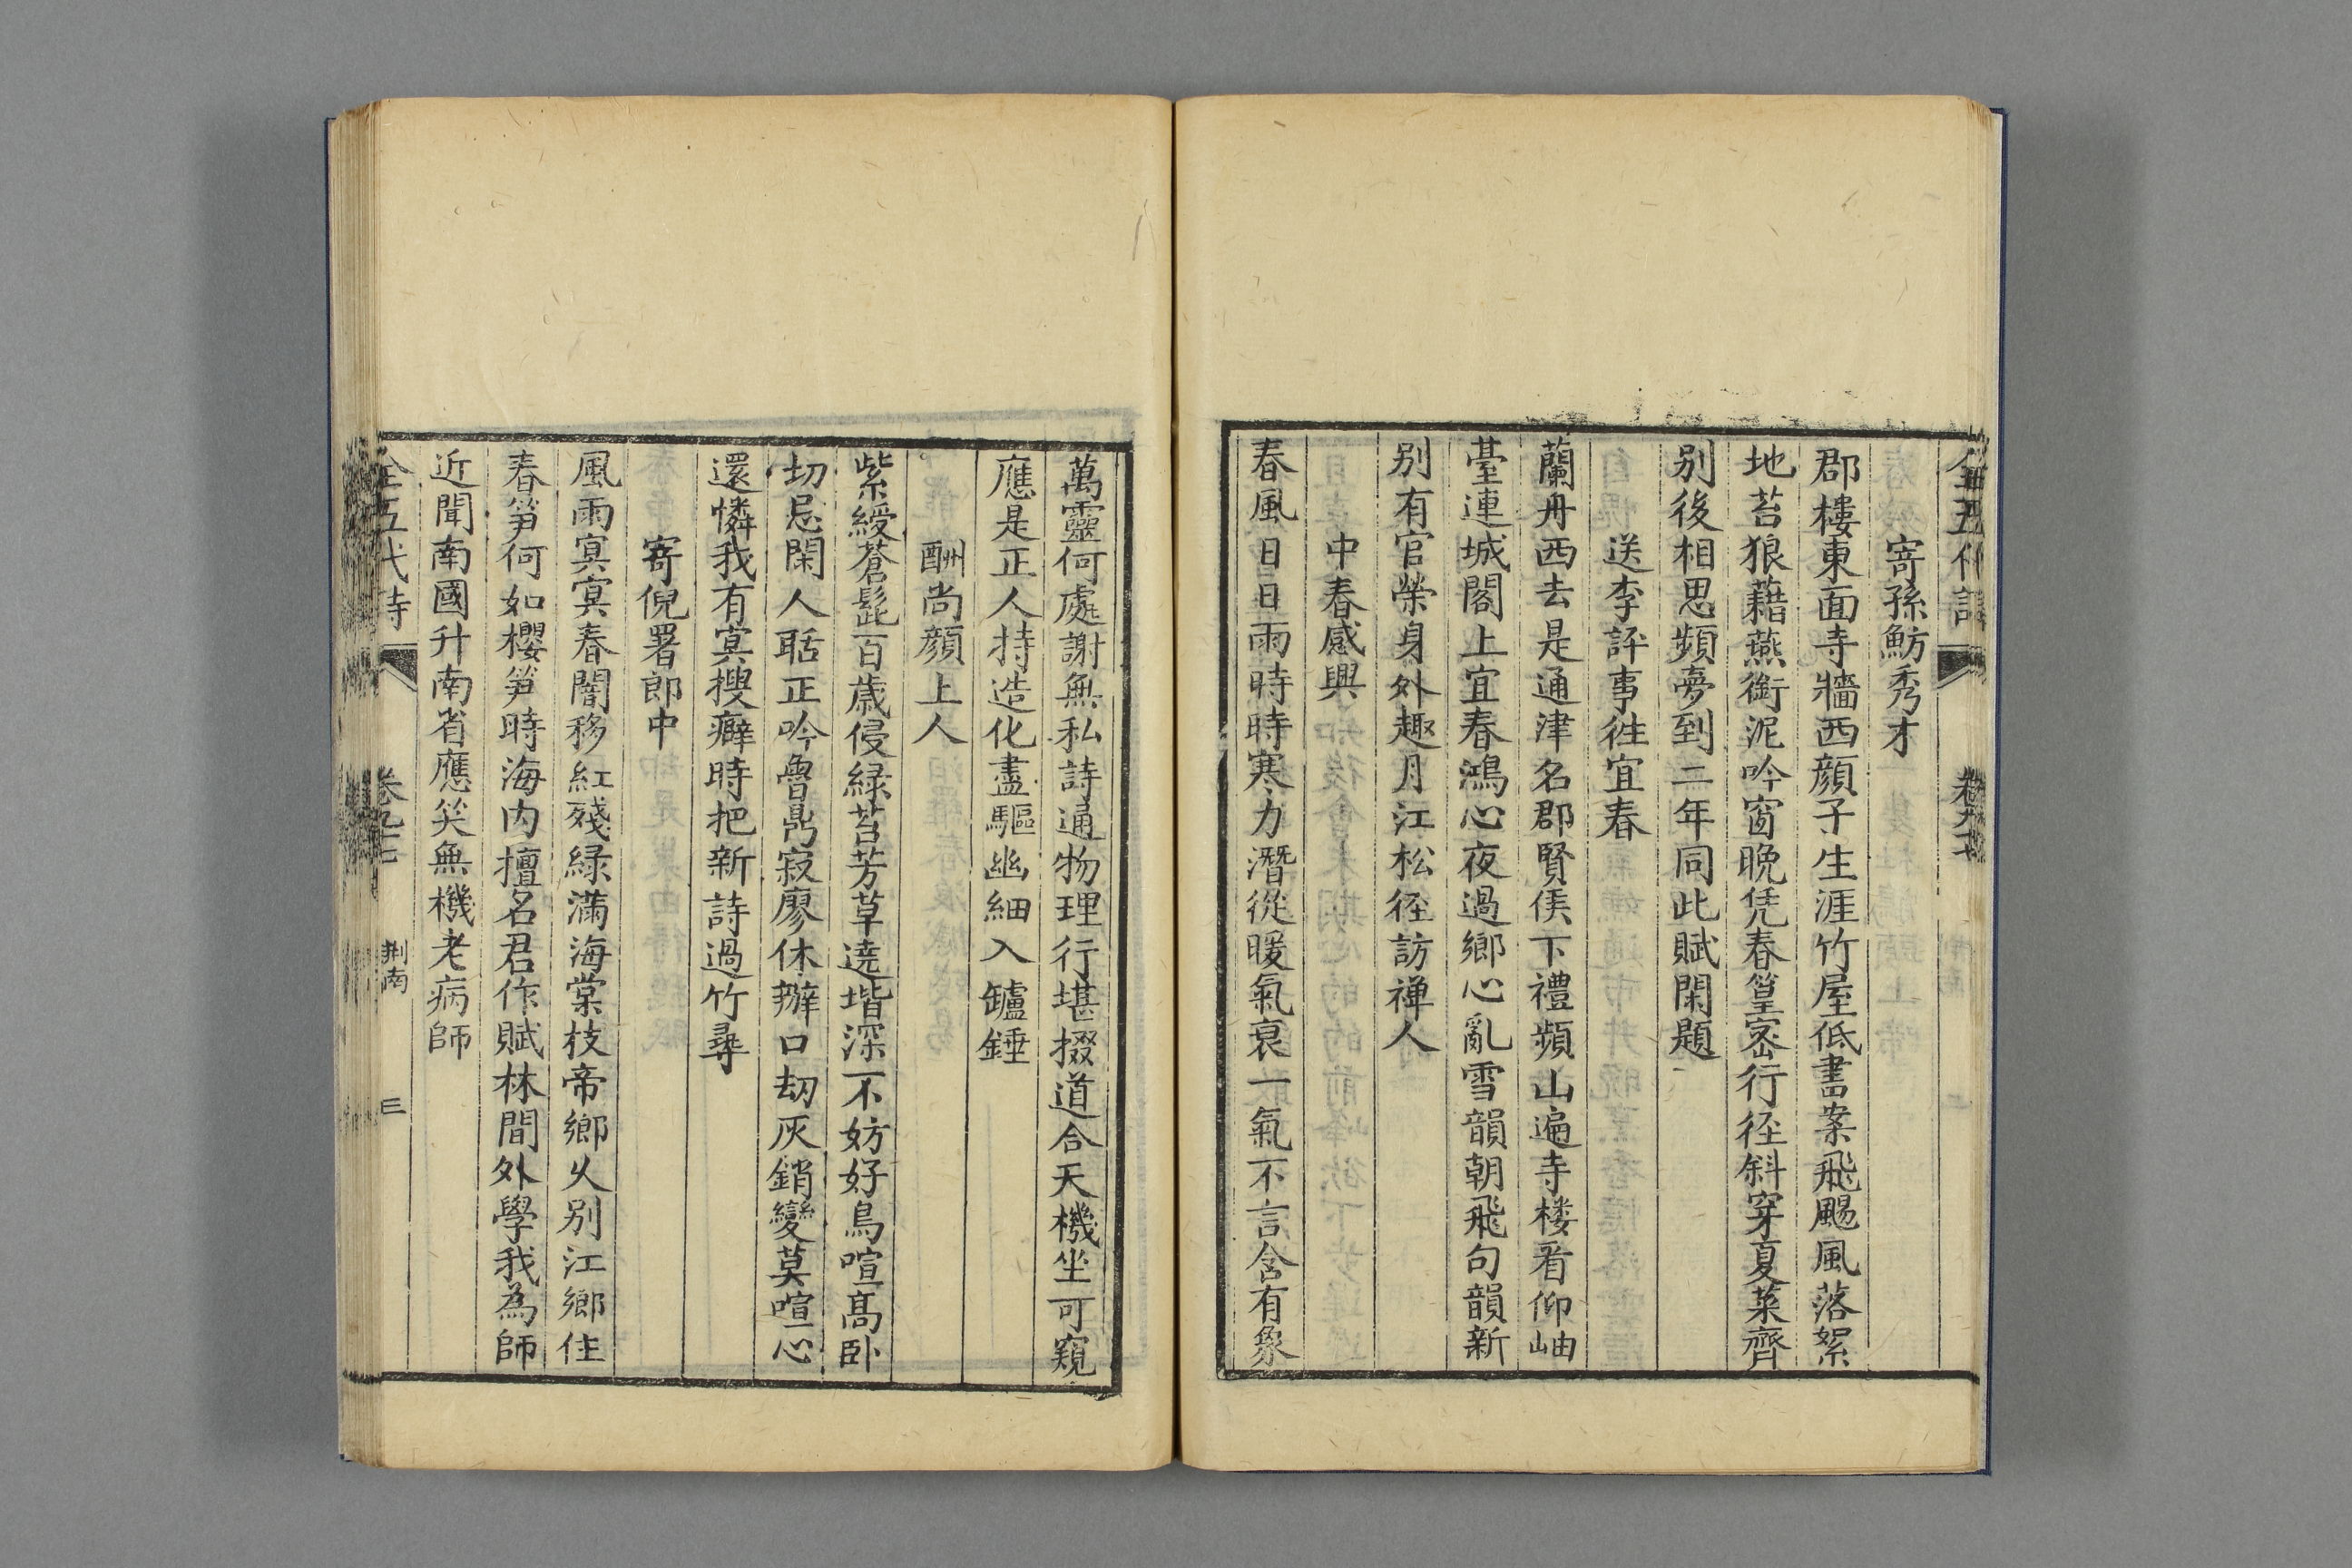 全五代詩
寄孫魴秀才
郡樓東面寺牆西顏子生涯竹屋低書案飛颺風落絮
地苔狼藉燕銜泥吟窗晚凭春篁密行徑斜穿夏菜齊
別後相思頻夢到二年同此賦閑題
送李評事往宜春
蘭舟西去是通津名郡賢侯下禮頻山遍寺樓看仰岫
臺連城閣上宜春鴻心夜過鄉心亂雪韻朝飛句韻新
別有官榮身外趣月江松徑訪禪人
中春感興
春風日日雨時時寒力潛從暖氣衰一氣不言含有象
萬靈何處謝無私詩通物理行堪掇道合天機坐可窺
應是正人持造化盡驅幽細入鑪錘
酬尚顏上人
紫綬蒼髭百歲侵綠苔芳草遶堦深不妨好鳥喧高臥
切忌閑人聒正吟魯鼎寂寥休辦口劫灰銷變莫喧心
還憐我有冥搜癖時把新詩過竹尋
寄倪署郎中
風雨冥冥春闇移紅殘綠滿海棠枝帝鄉久別江鄉住
春笋何如櫻笋時海內擅名君作賦林間外學我為師
近聞南國升南省應笑無機老病師
全五代詩 卷九十 荆南 三